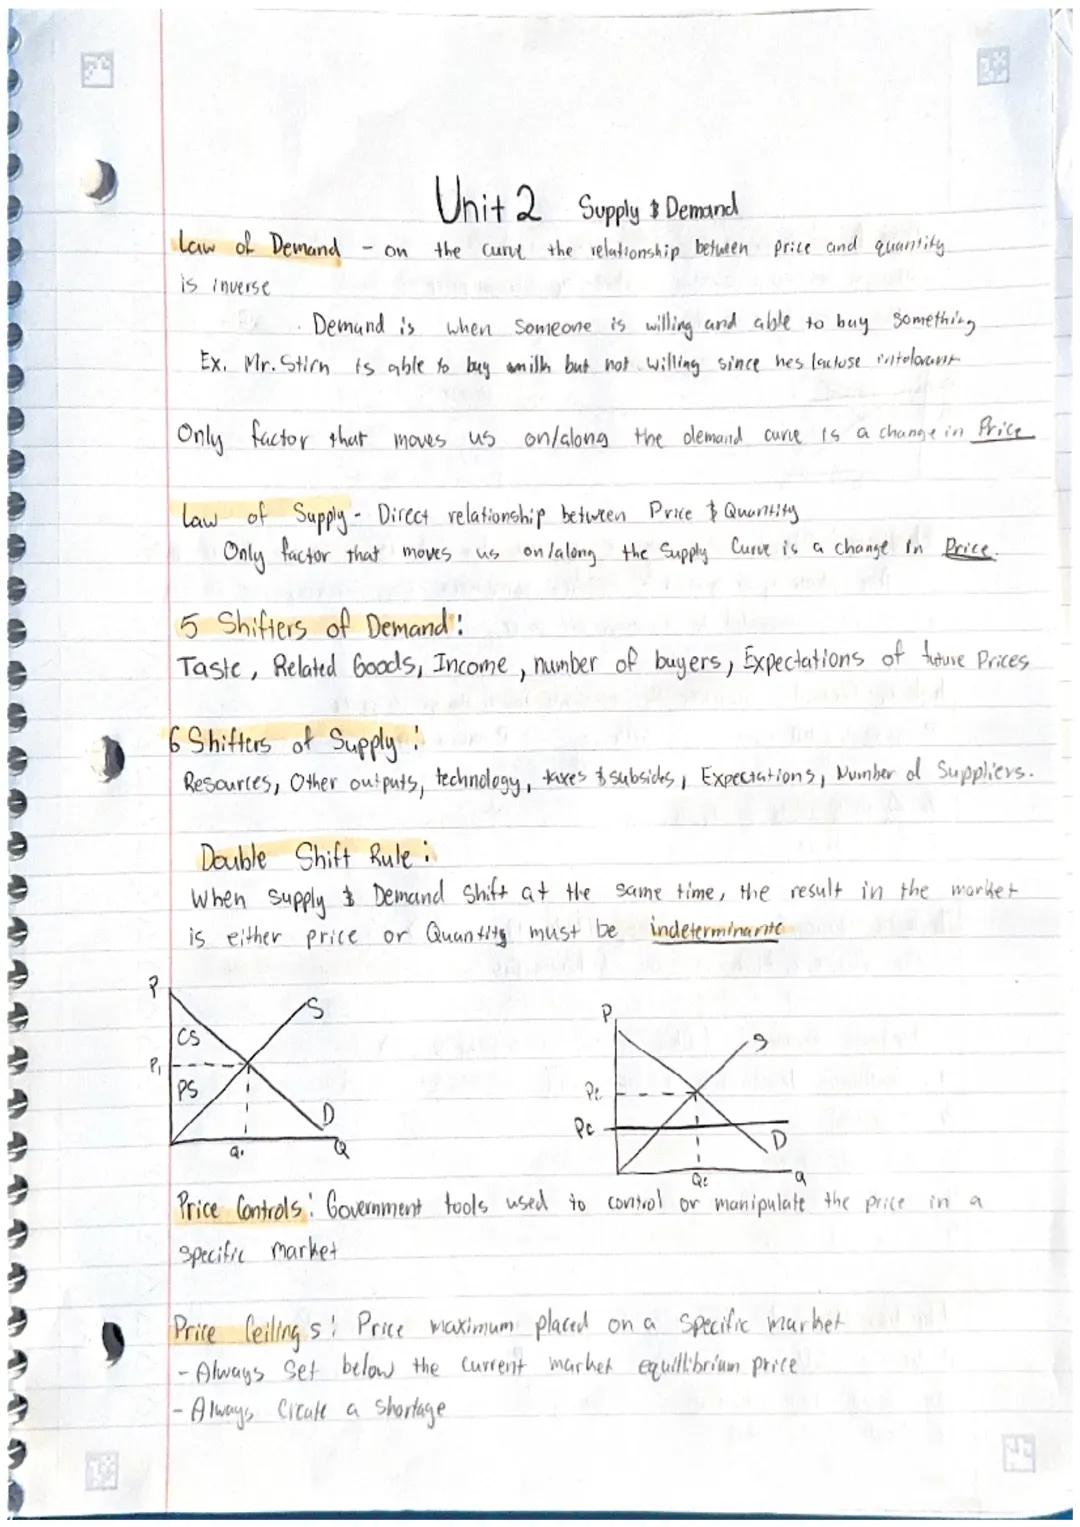 Unit 2 Supply & Demand
Law of Demand - on the curve the relationship between price and quantity
is inverse
Demand is when someone is willing and able to buy something
Ex. Mr. Stirn is able to buy milk but not willing since hes lactose intolorant
Only factor that moves us on/along the demand curve is a change in Price
Law of Supply - Direct relationship between Price & Quantity
Only factor that moves us on/along the Supply Curve is a change in Price.
5 Shifters of Demand:
Taste, Related Goods, Income, number of buyers, Expectations of future Prices
6 Shifters of Supply:
Resources, Other outputs, technology, taxes & subsides, Expectations, Number of Suppliers.
Double Shift Rule:
When supply & Demand shift at the same time, the result in the market
is either price or Quantity must be indeterminante
P
S
CS
P₁
PS
D
Q₁
Q
P
S
Pe
Pc
D
Qe
Q
Price Controls: Government tools used to control or manipulate the price in a
specific market
Price Ceilings: Price maximum placed on a specific market
- Always set below the current market equillibrium price
- Always Create a shortage